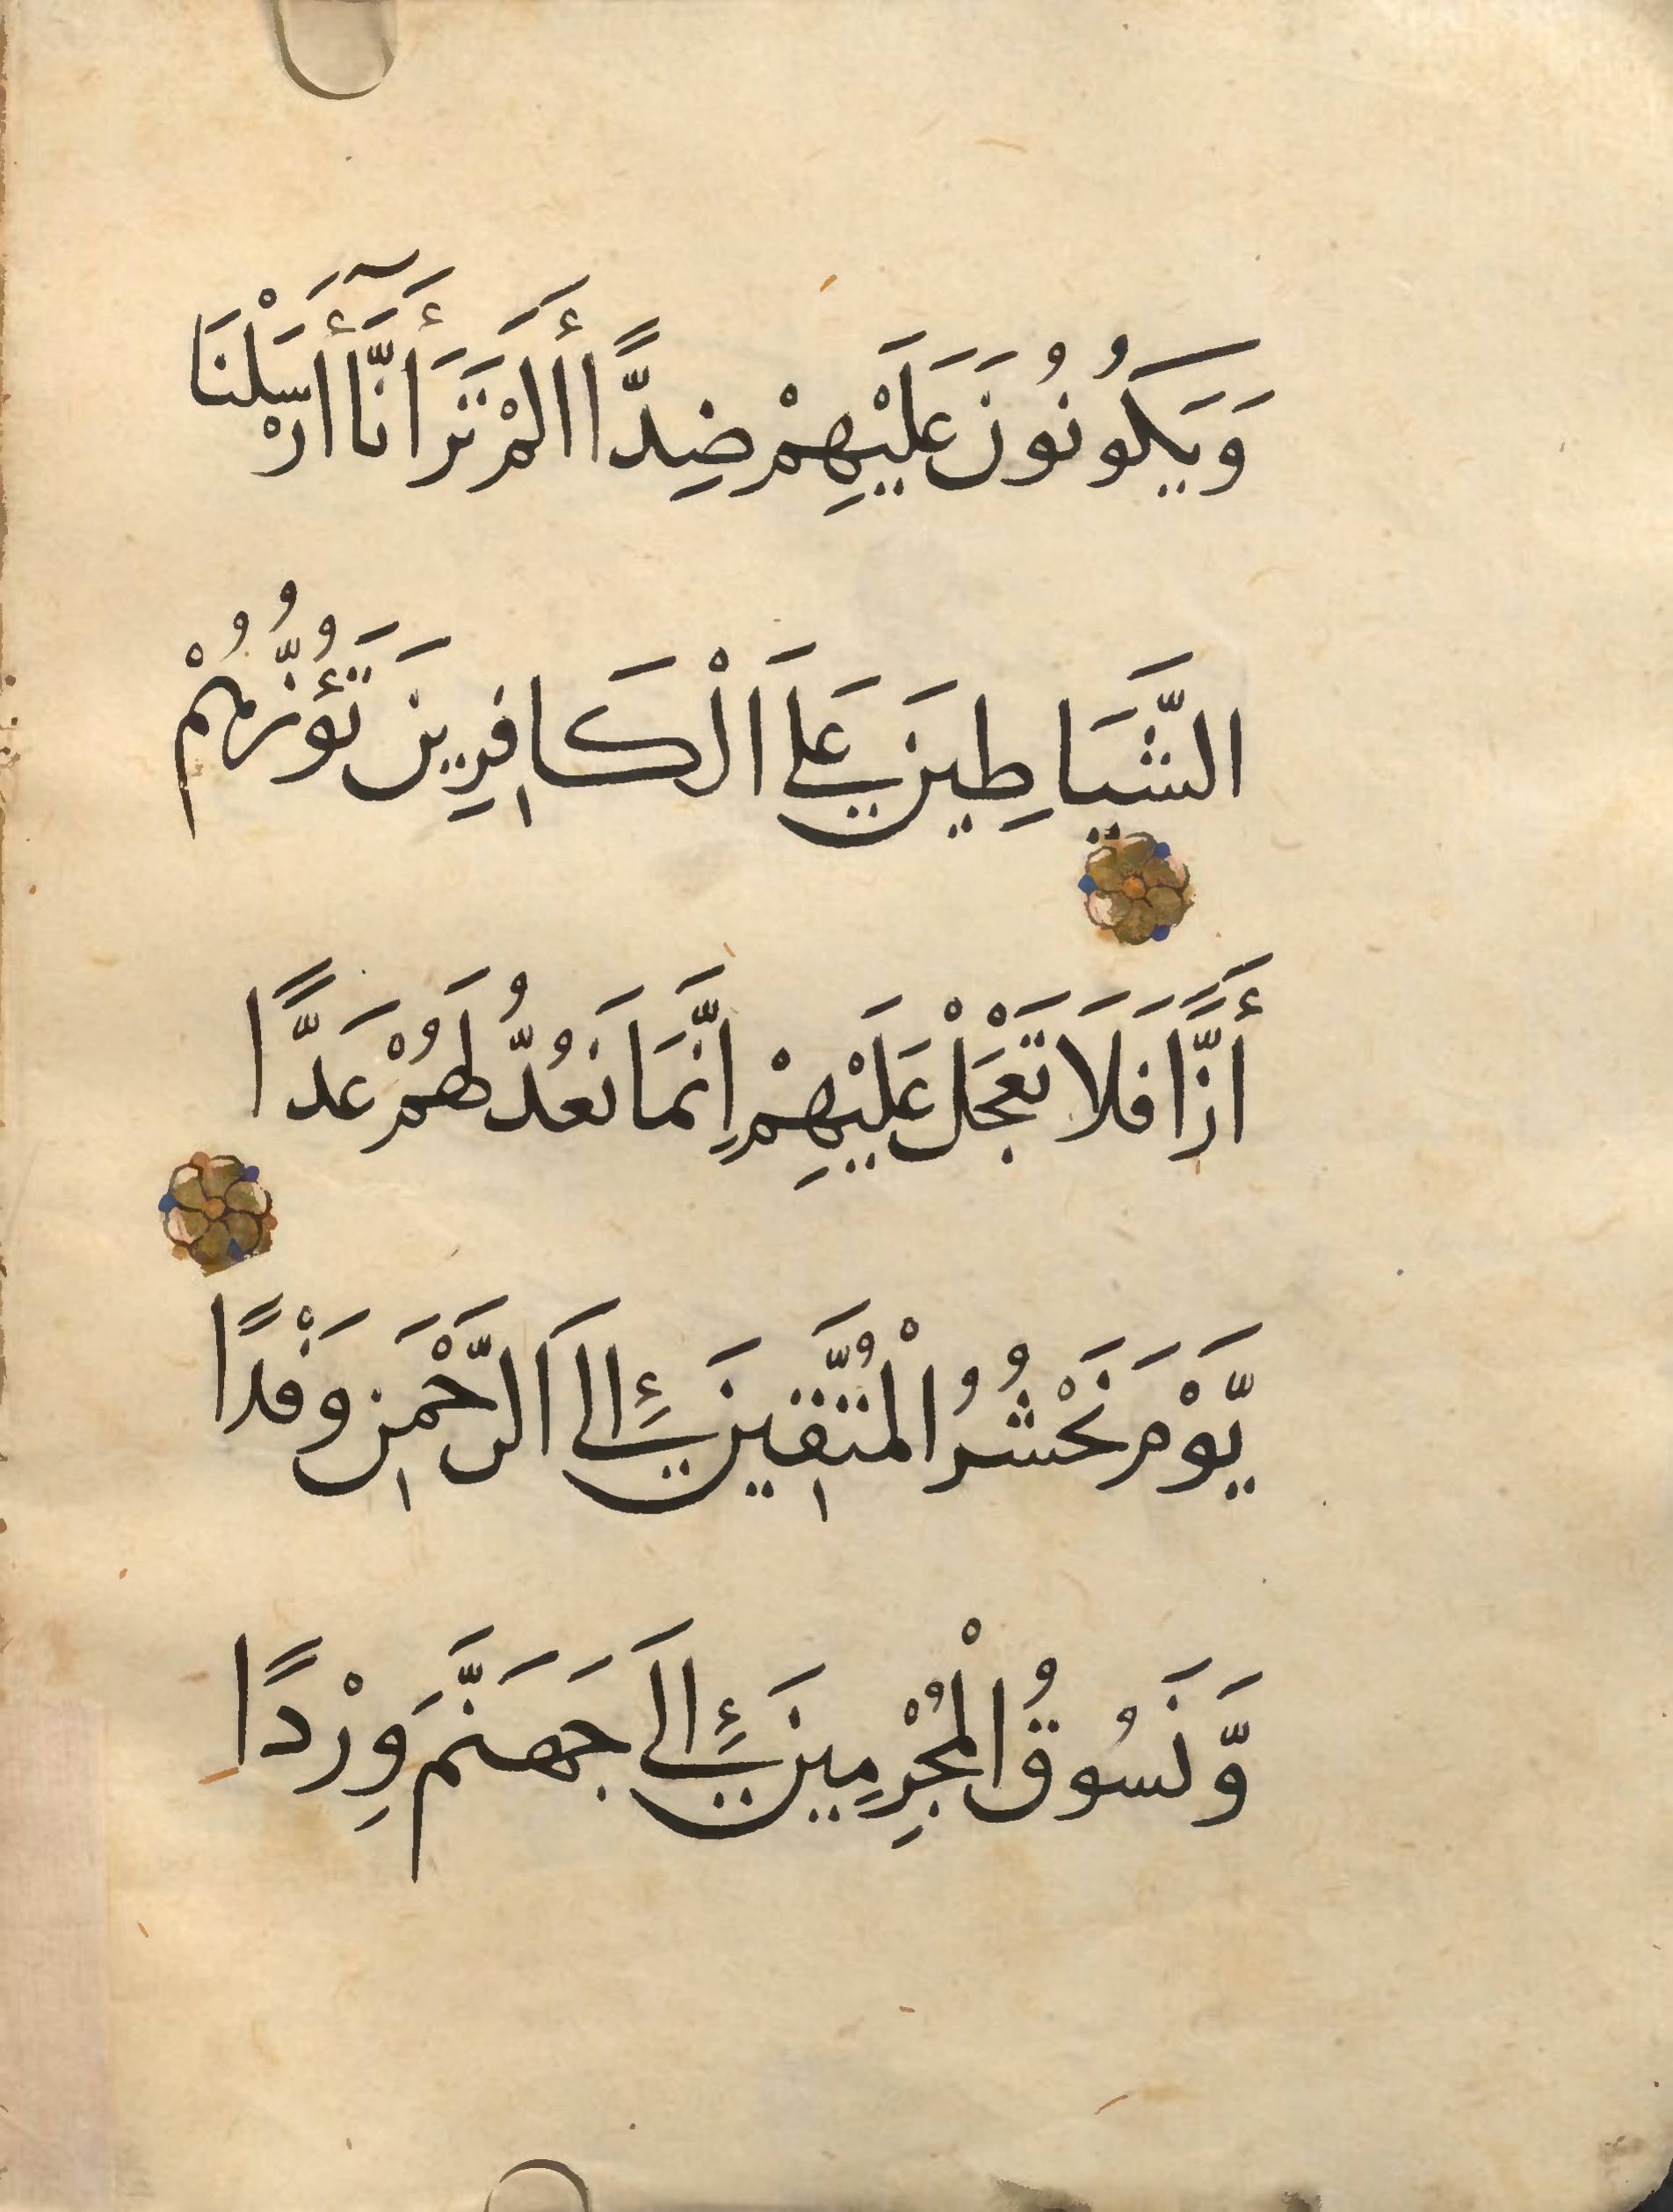 وَيَكُونُونَ عَلَيْهِمْ ضِدًّا أَلَمْ تَرَ أَنَّا أَرْسَلْنَا
الشَّيَاطِينَ عَلَى الْكَافِرِينَ تَؤُزُّهُمْ
أَزًّا فَلَا تَعْجَلْ عَلَيْهِمْ إِنَّمَا نَعُدُّ لَهُمْ عَدًّا
يَّوْمَ نَحْشُرُ الْمُتَّقِينَ إِلَى الرَّحْمَنِ وَفْدًا
وَّنَسُوقُ الْمُجْرِمِينَ إِلَى جَهَنَّمَ وِرْدًا